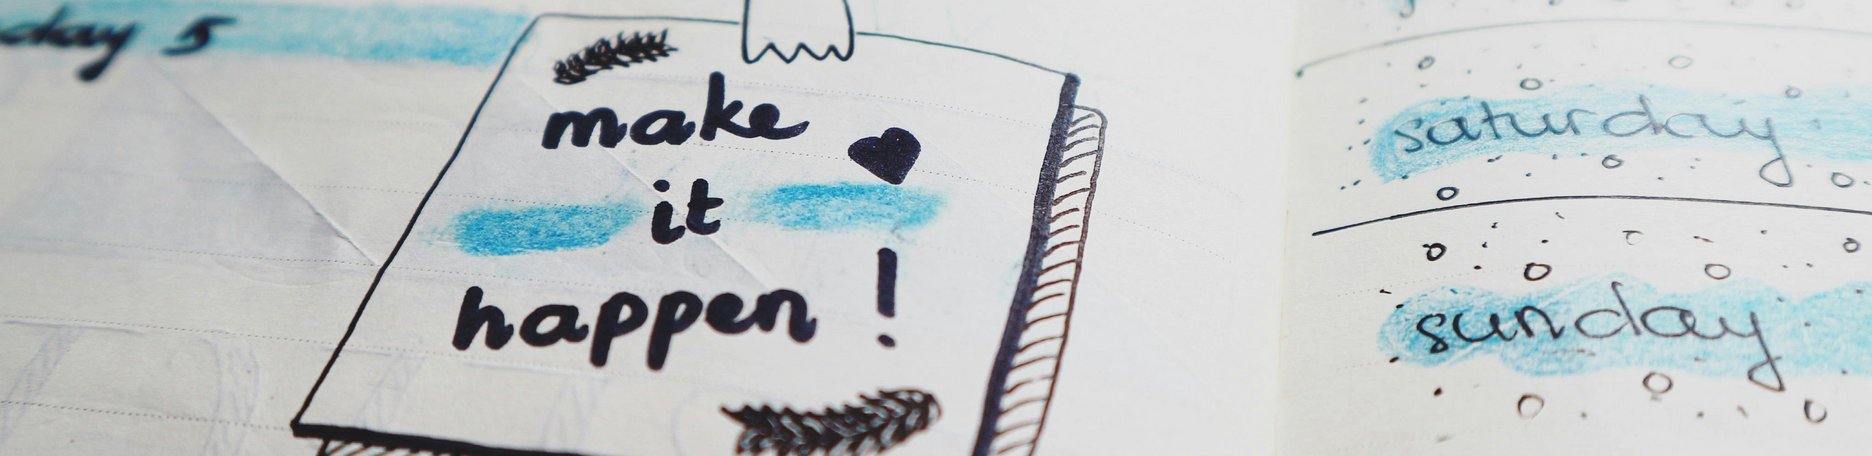 day 5
make
it
happen!
saturday
sunday